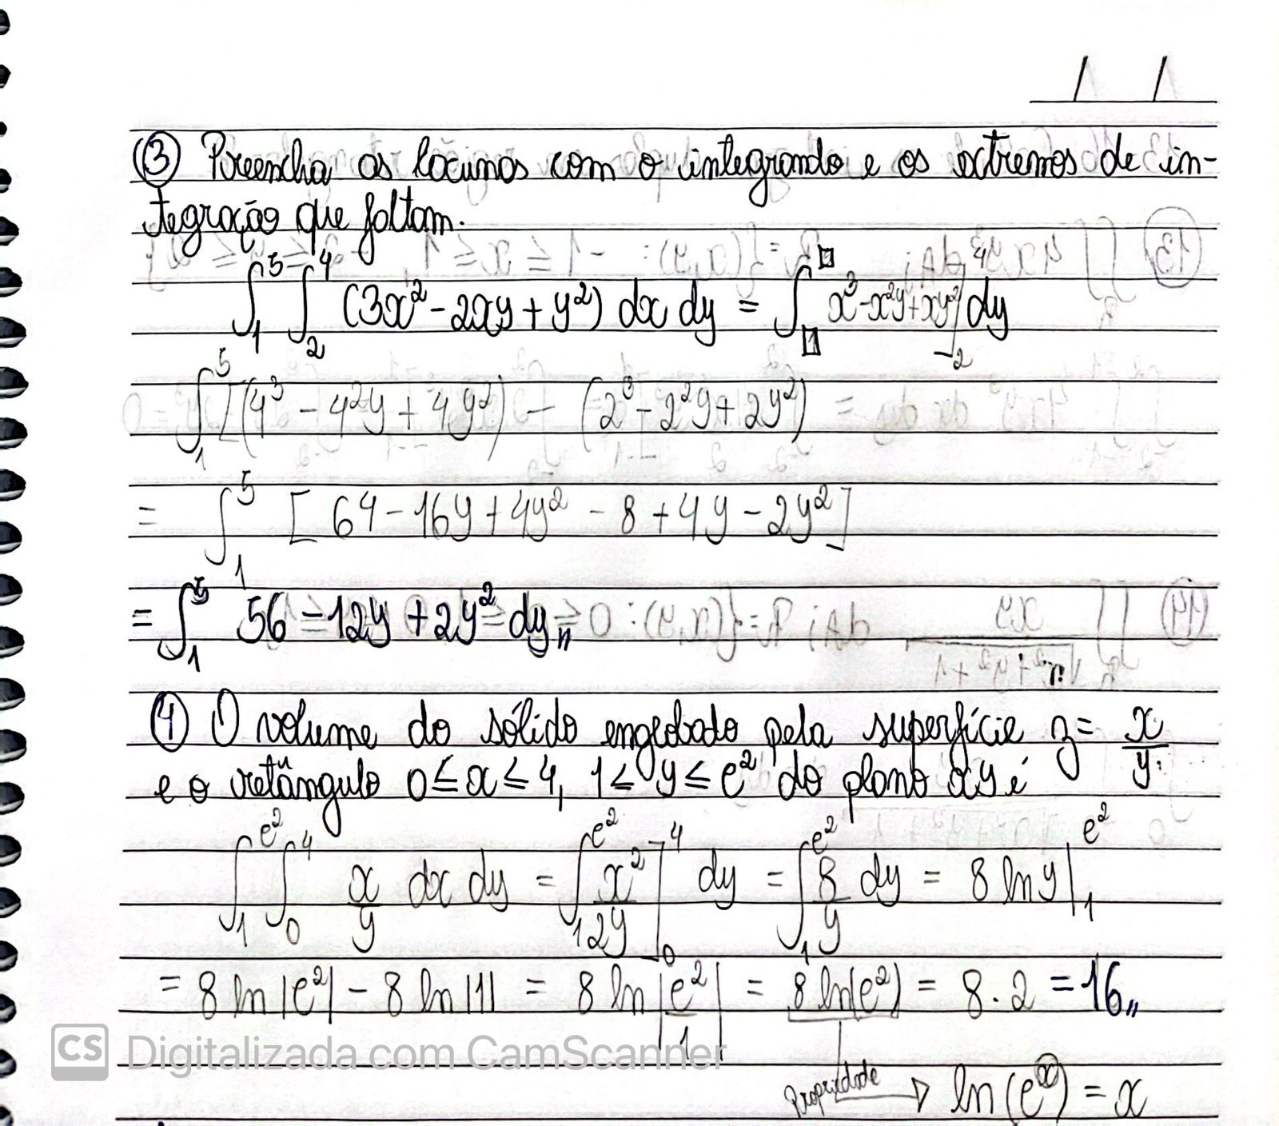 ③ Preencha as lacunas com o integrando e os extremos de in-
tegração que faltam.
∫₁⁵ ∫₂⁴ (3x² - 2xy + y²) dx dy = ∫□^□ x³-x²y+xy²|₂⁴ dy
∫₁⁵ [(4³ - 4²y + 4y²) - (2³ - 2²y + 2y²)
= ∫₁⁵ [64 - 16y + 4y² - 8 + 4y - 2y²]
= ∫₁⁵ 56 - 12y + 2y² dy//
④ O volume do sólido englobado pela superfície z = x/y
e o retângulo 0 ≤ x ≤ 4, 1 ≤ y ≤ e² do plano xy é
∫₁^e² ∫₀⁴ x/y dx dy = ∫₁^e² x²/2y]₀⁴ dy = ∫₁^e² 8/y dy = 8 ln y|₁^e²
= 8 ln|e²| - 8 ln|1| = 8 ln|e²/1| = 8 ln(e²) = 8 . 2 = 16//
CS Digitalizada com CamScanner
Propriedade → ln(eˣ) = x